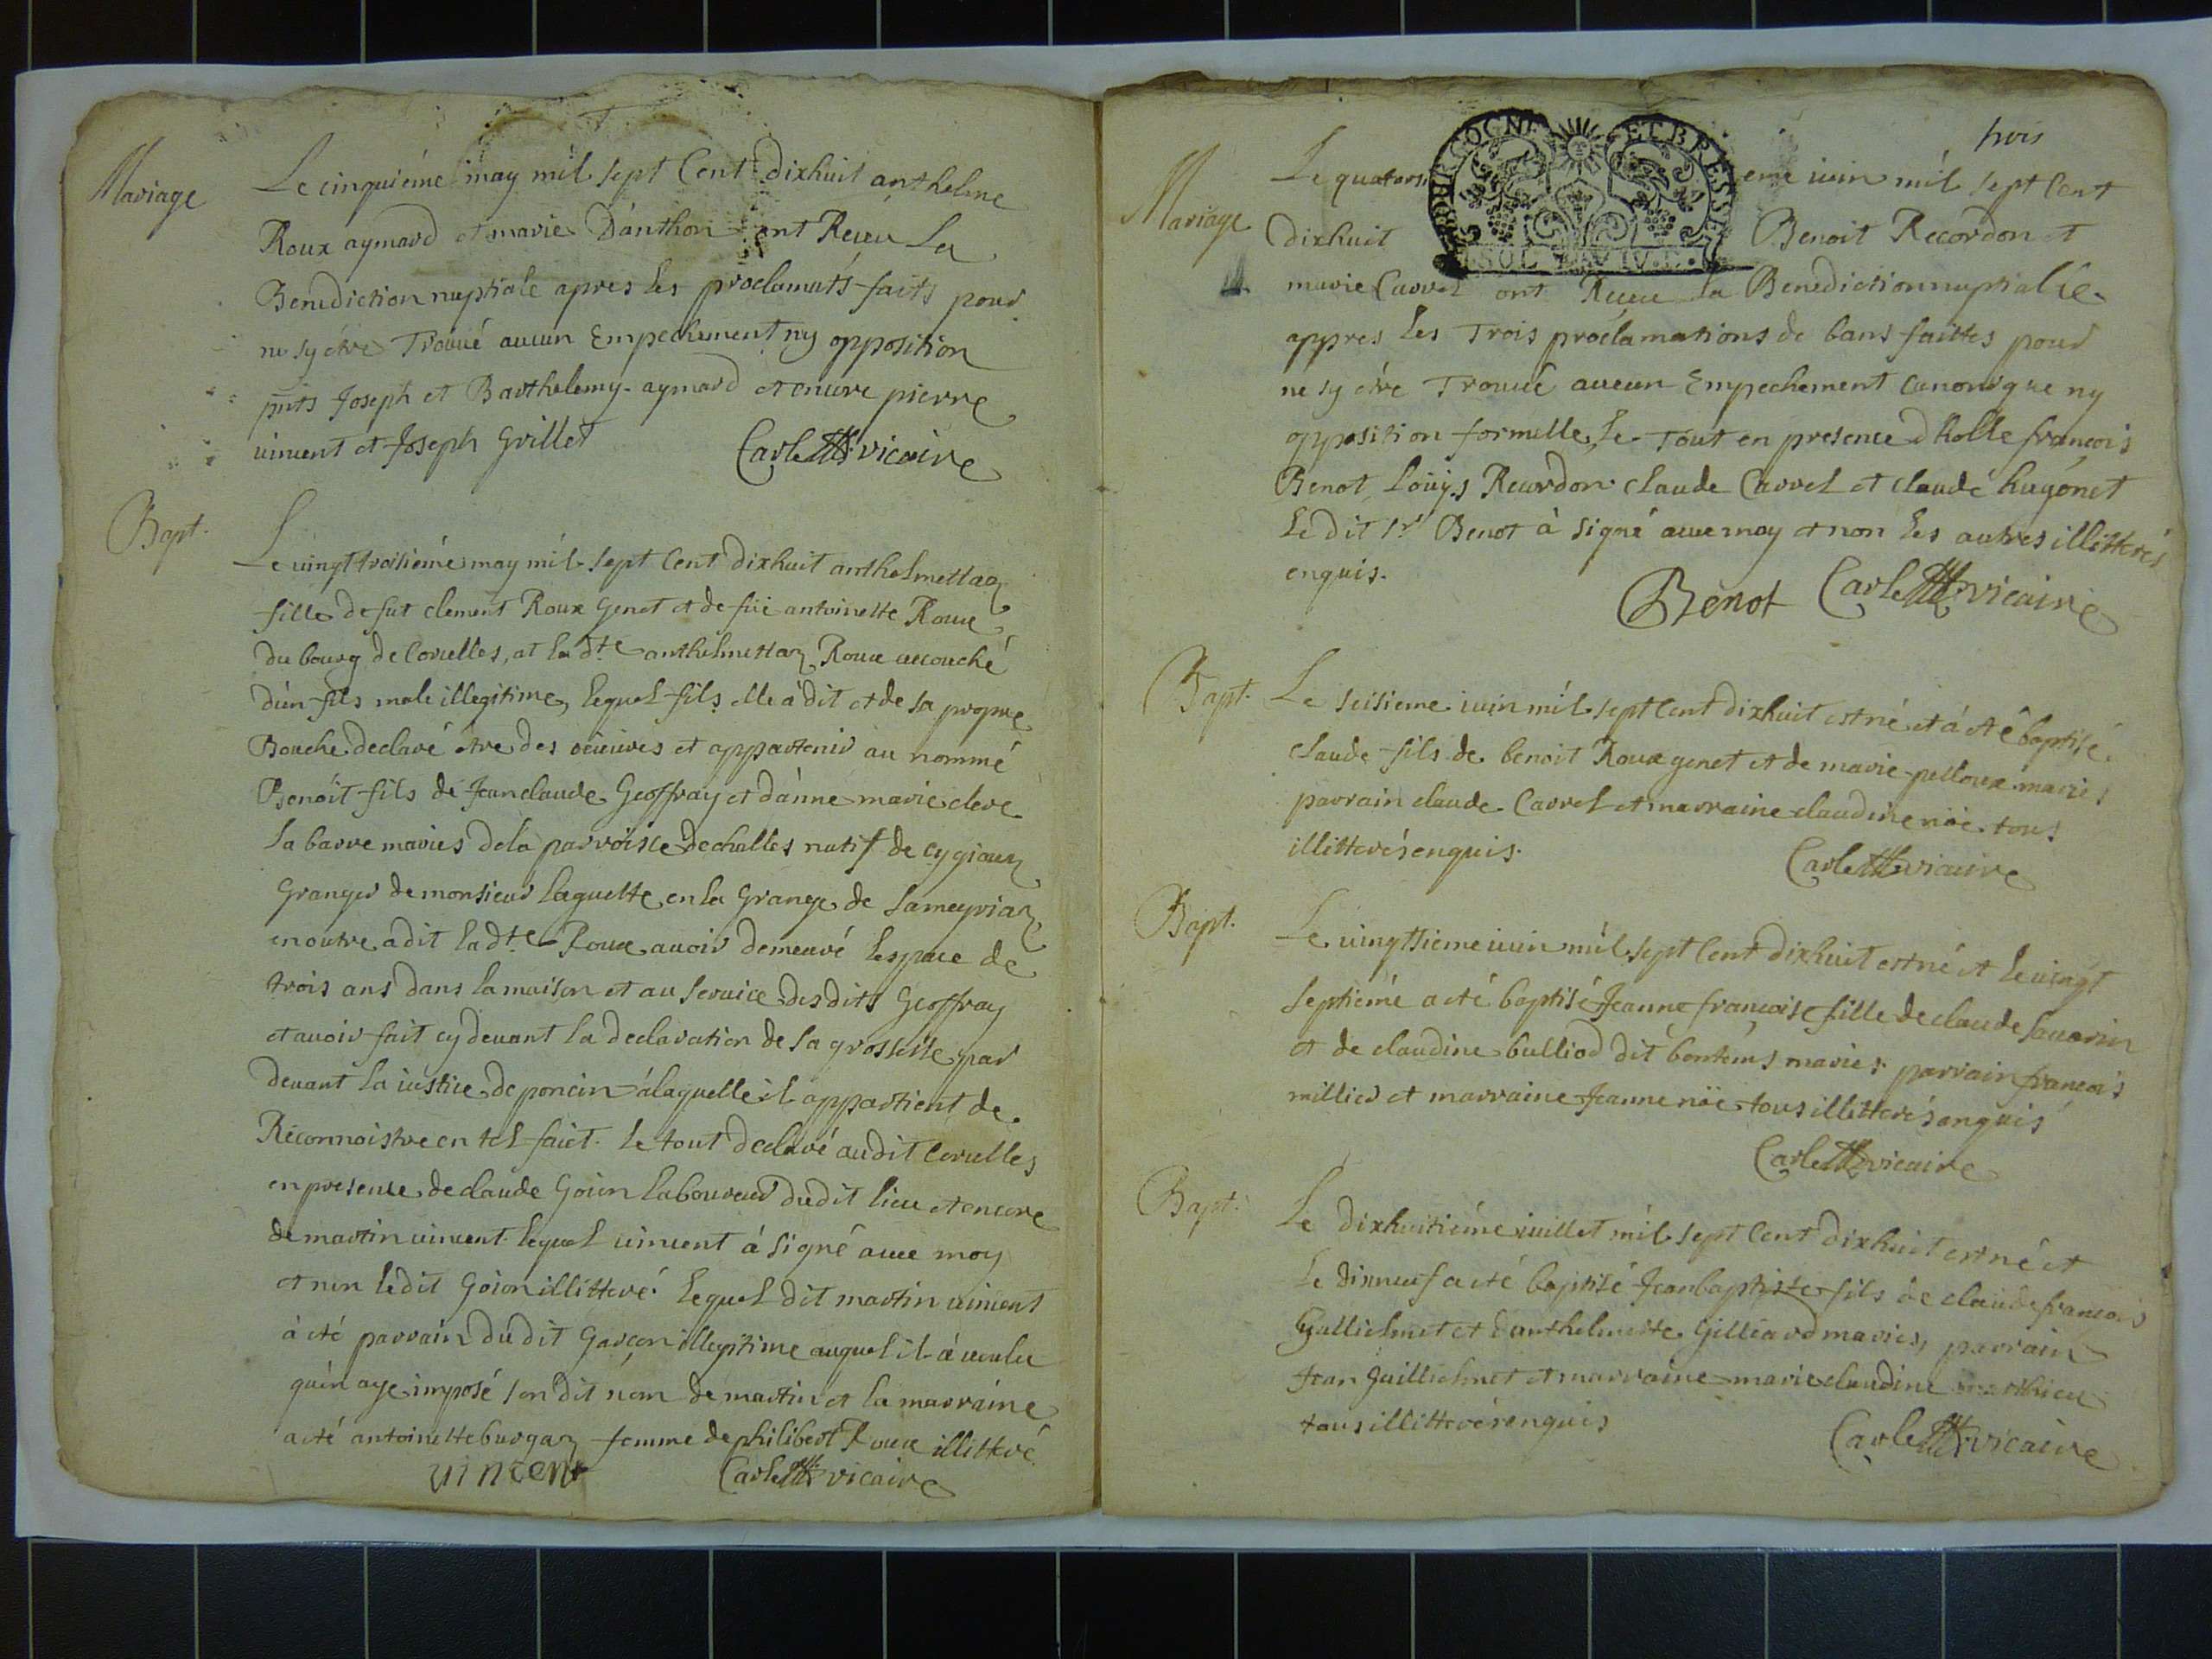 Mariage
Le cinquiéme may mil sept Cent dixhuit anthelme
Roux aymard et marie Danthon ont Receu La
Benediction nuptiale apres les proclamats faits pour
ne sy étre Trouué aucun Empechement ny opposition
pnts Joseph et Barthelemy aymard et encure pierre
uincent et Joseph Grillet Carle vicaire
Bapt.
Le uingt troisiéme may mil sept Cent dixhuit anthelmettaz
fille de fut clement Roux Genet et de füe antoinette Roux
du bourg de Corcelles, at la dte anthelmettaz Roux accouché
d'un fils male illegitime, lequel fils elle á dit et de sa propre
Bouche declaré étre des oeuures et appartenir au nommé
Benoit fils de Jeanclaude Geoffray et d'anne marie clere
la barre mariés de la parroisse de challes natif de
Granger de monsieur laguette en la Grange de Lameyriaz
en outre a dit la dte Roux auoir demeuré lespace de
trois ans dans la maison et au seruice desdits Geoffray
et auoir fait cy deuant la declaration de sa grossesse par
deuant la iustice de poncin á laquelle il appartient de
Réconnoistre en tel faict. le tout declaré audit Corcelles
en presence de claude Goion laboureur dudit lieu et encure
de martin uincent lequel uincent á signé auec moy
et non ledit Goion illitteré. lequel dit martin uincent
á eté parrain du dit Garçon illegitime auquel il á uoulu
qu'on aye imposé son dit nom de martin et la marraine
a eté antoinette burgaz femme de philibert Roux illitteré
uincent Carle vicaire
trois
BOURGOGNE ET BRESSE
Mariage
Le quatorsieme iuin mil sept Cent
dixhuit Benoit Recordon et
marie Carrel ont Receu la Benediction nuptialle
appres les Trois proclamations de bans faittes pour
ne sy étre Trouué aucun Empechement canonique ny
opposition formelle, le Tout en presence d'holle françois
Benot Loüys Recordon claude Carrel et claude hugonet
le dit sr Benot à signé auec moy et non les autres illitterés
enquis.
Benot Carle vicaire
Bapt.
Le seisieme iuin mil sept Cent dixhuit est né et á eté baptisé
claude fils de benoit Roux genet et de marie pelloux mariés
parrain claude Carrel et marraine claudine nöe tous
illitterés enquis.
Carle vicaire
Bapt.
Le uingtsieme iuin mil sept Cent dixhuit est né et le uingt
septiéme a eté baptisé Jeanne françoise fille de claude sauarin
et de claudine bulliod dit bontems mariés parrain françois
millier et marraine Jeanne nöe tous illitterés enquis
Carle vicaire
Bapt.
Le dixhuitiéme iuillet mil sept Cent dixhuit est né et
le dixneuf a eté baptisé Jean baptiste fils de claude françois
Guillielmet et d'anthelmette Gilliard mariés, parrain
Jean Guillielmet et marraine marie claudine mathieu
tous illitterés enquis
Carle vicaire